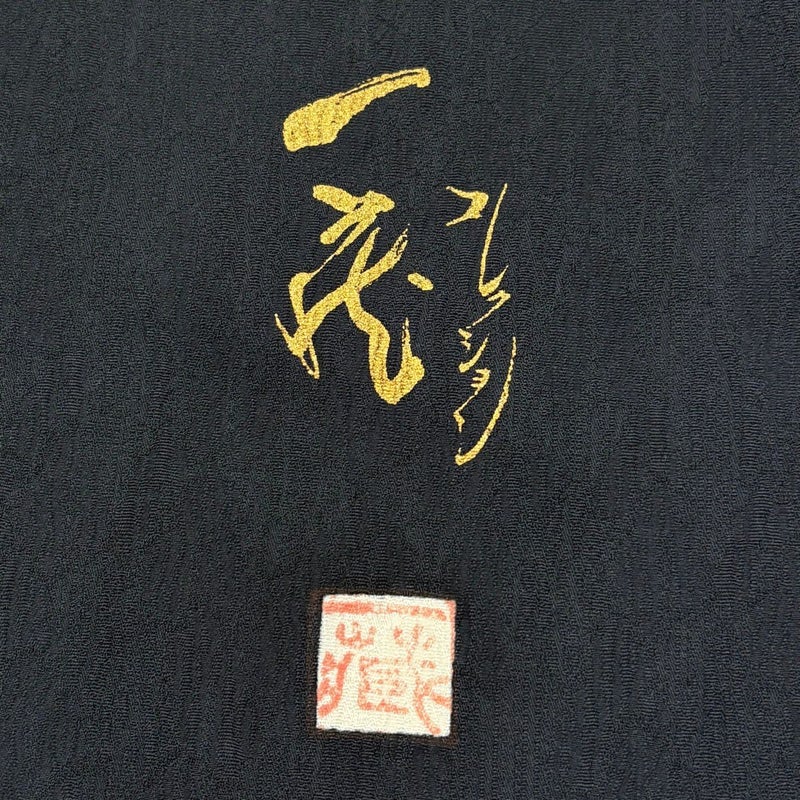 一蔵
コレクション